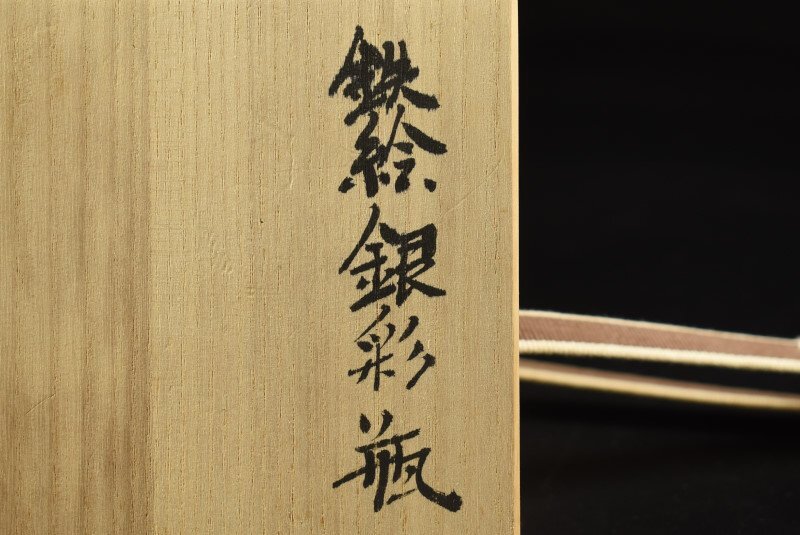 鉄絵銀彩瓶